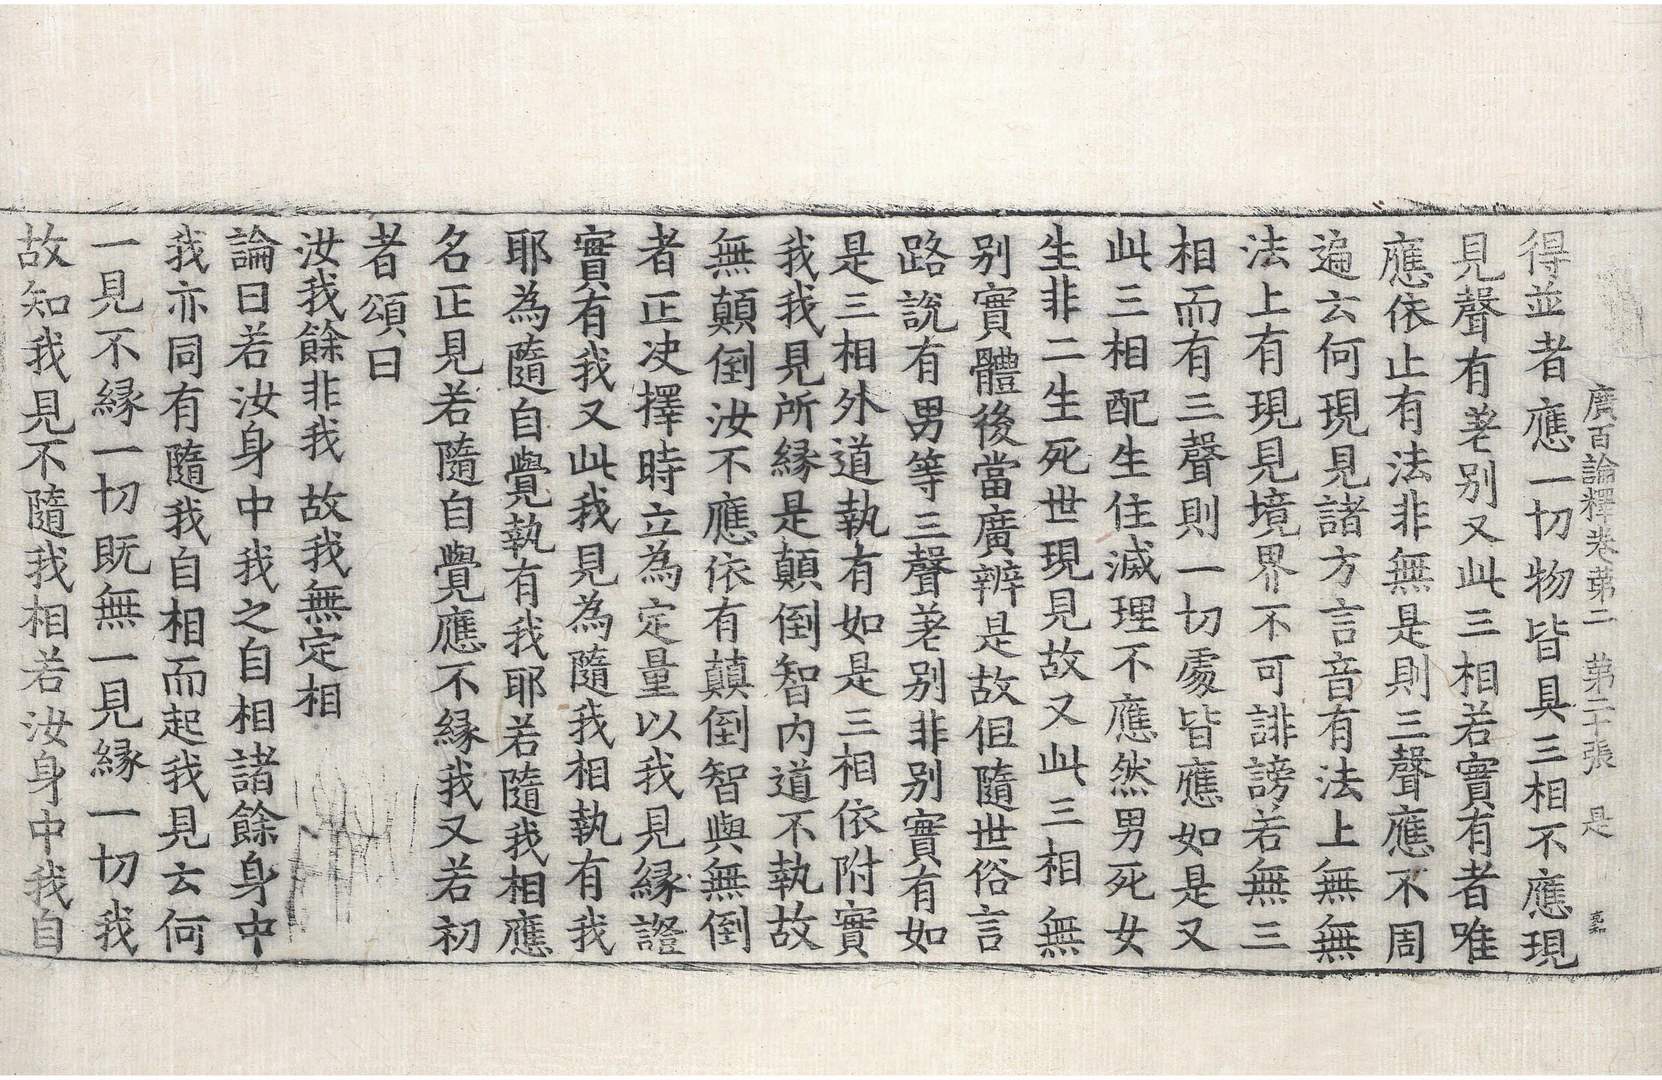 廣百論釋卷苐二　苐二十張　是
得並者應一切物皆具三相不應現
見聲有差別又此三相若實有者唯
應依止有法非無是則三聲應不周
遍云何現見諸方言音有法上無無
法上有現見境界不可誹謗若無三
相而有三聲則一切處皆應如是又
此三相配生住滅理不應然男死女
生非二生死世現見故又此三相無
別實體後當廣辨是故但隨世俗言
路說有男等三聲差別非別實有如
是三相外道執有如是三相依附實
我我見所縁是顛倒智内道不執故
無顛倒汝不應依有顛倒智與無倒
者正决擇時立為定量以我見縁證
實有我又此我見為隨我相執有我
耶為隨自覺執有我耶若隨我相應
名正見若隨自覺應不縁我又若初
者頌曰
汝我餘非我　故我無定相
論曰若汝身中我之自相諸餘身中
我亦同有隨我自相而起我見云何
一見不縁一切既無一見縁一切我
故知我見不隨我相若汝身中我自